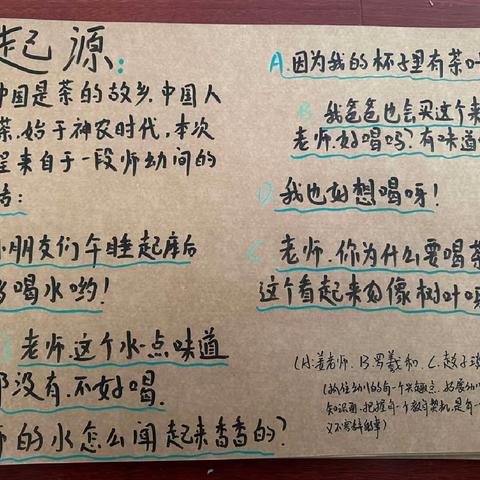 起源:
中国是茶的故乡.中国人
茶.始于神农时代,本次
程来自于一段师幼间的
话:
小朋友们午睡起床后
喝水哟!
老师.这个水一点味道
都没有.不好喝.
师的水怎么闻起来香香的?
A.因为我的杯子里有茶叶
B 我爸爸也会买这个来
老师.好喝吗?有味道
D 我也好想喝呀!
C 老师.你为什么要喝茶
这个看起来好像树叶呀
(A:姜老师. B.罗羲和. C.赵子